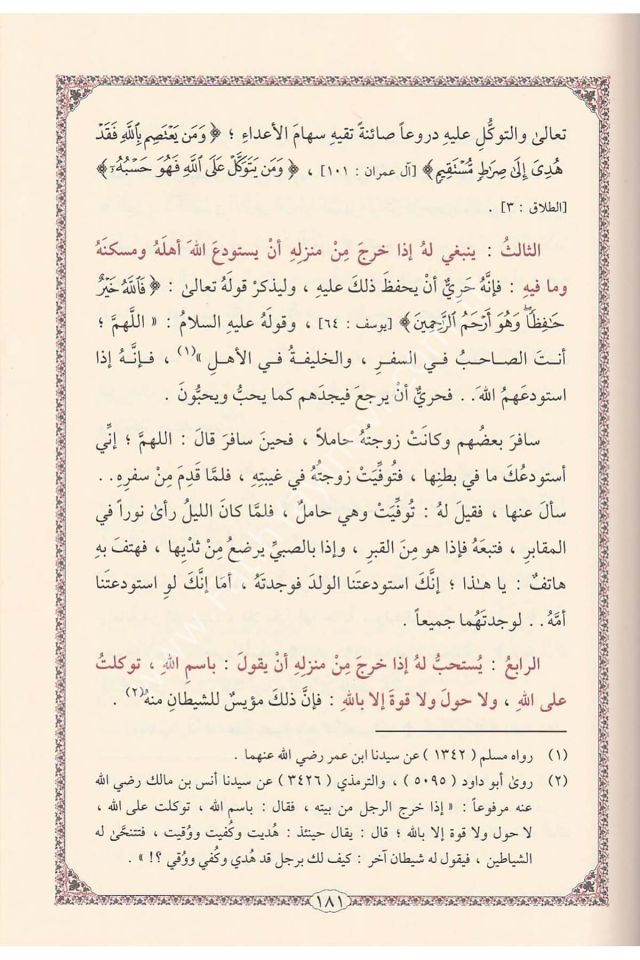 تعالىٰ والتوكُّلِ عليهِ دروعاً صائنةً تقيهِ سهامَ الأعداءِ ؛ ﴿ وَمَن يَعْتَصِم بِاللَّهِ فَقَدْ
هُدِىَ إِلَىٰ صِرَٰطٍ مُّسْتَقِيمٍ﴾ [آل عمران : ١٠١] ، ﴿ وَمَن يَتَوَكَّلْ عَلَى اللَّهِ فَهُوَ حَسْبُهُۥٓ﴾
[الطلاق : ٣] .
الثالثُ : ينبغي لهُ إذا خرجَ مِنْ منزلِهِ أنْ يستودعَ اللهَ أهلَهُ ومسكنَهُ
وما فيهِ : فإنَّهُ حَرِيٌّ أن يحفظَ ذلكَ عليهِ ، وليذكرْ قولَهُ تعالىٰ : ﴿ فَاللَّهُ خَيْرٌ
حَافِظًا ۖ وَهُوَ أَرْحَمُ الرَّاحِمِينَ﴾ [يوسف : ٦٤] ، وقولَهُ عليهِ السلامُ : « اللهمَّ ؛
أنتَ الصاحبُ في السفرِ ، والخليفةُ في الأهلِ »(١) ، فإنَّهُ إذا
استودعَهمُ اللهَ.. فحريٌّ أنْ يرجعَ فيجدَهم كما يحبُّ ويحبُّونَ .
سافرَ بعضُهم وكانَتْ زوجتُهُ حاملاً ، فحينَ سافرَ قالَ : اللهمَّ ؛ إنِّي
أستودعُكَ ما في بطنِها ، فتُوفِّيَتْ زوجتُهُ في غيبتِهِ ، فلمَّا قَدِمَ مِنْ سفرِهِ..
سألَ عنها ، فقيلَ لهُ : تُوفِّيَتْ وهي حاملٌ ، فلمَّا كانَ الليلُ رأىٰ نوراً في
المقابرِ ، فتبعَهُ فإذا هو مِنَ القبرِ ، وإذا بالصبيِّ يرضعُ مِنْ ثديِها ، فهتفَ بهِ
هاتفٌ : يا هـٰذا ؛ إنَّكَ استودعتَنا الولدَ فوجدتَهُ ، أمَا إنَّكَ لوِ استودعتَنا
أمَّهُ.. لوجدتَهُما جميعاً .
الرابعُ : يُستحبُّ لهُ إذا خرجَ مِنْ منزلِهِ أنْ يقولَ : باسمِ اللهِ ، توكلتُ
على اللهِ ، ولا حولَ ولا قوةَ إلا باللهِ : فإنَّ ذلكَ مؤيسٌ للشيطانِ منهُ(٢) .
(١) رواه مسلم ( ١٣٤٢ ) عن سيدنا ابن عمر رضي الله عنهما .
(٢) روىٰ أبو داود ( ٥٠٩٥ ) ، والترمذي ( ٣٤٢٦ ) عن سيدنا أنس بن مالك رضي الله
عنه مرفوعاً : « إذا خرج الرجل من بيته ، فقال : باسم الله ، توكلت على الله ،
لا حول ولا قوة إلا بالله ؛ قال : يقال حينئذ : هُديت وكُفيت ووُقيت ، فتتنحَّىٰ له
الشياطين ، فيقول له شيطان آخر : كيف لك برجل قد هُدي وكُفي ووُقي ؟! » .
١٨١